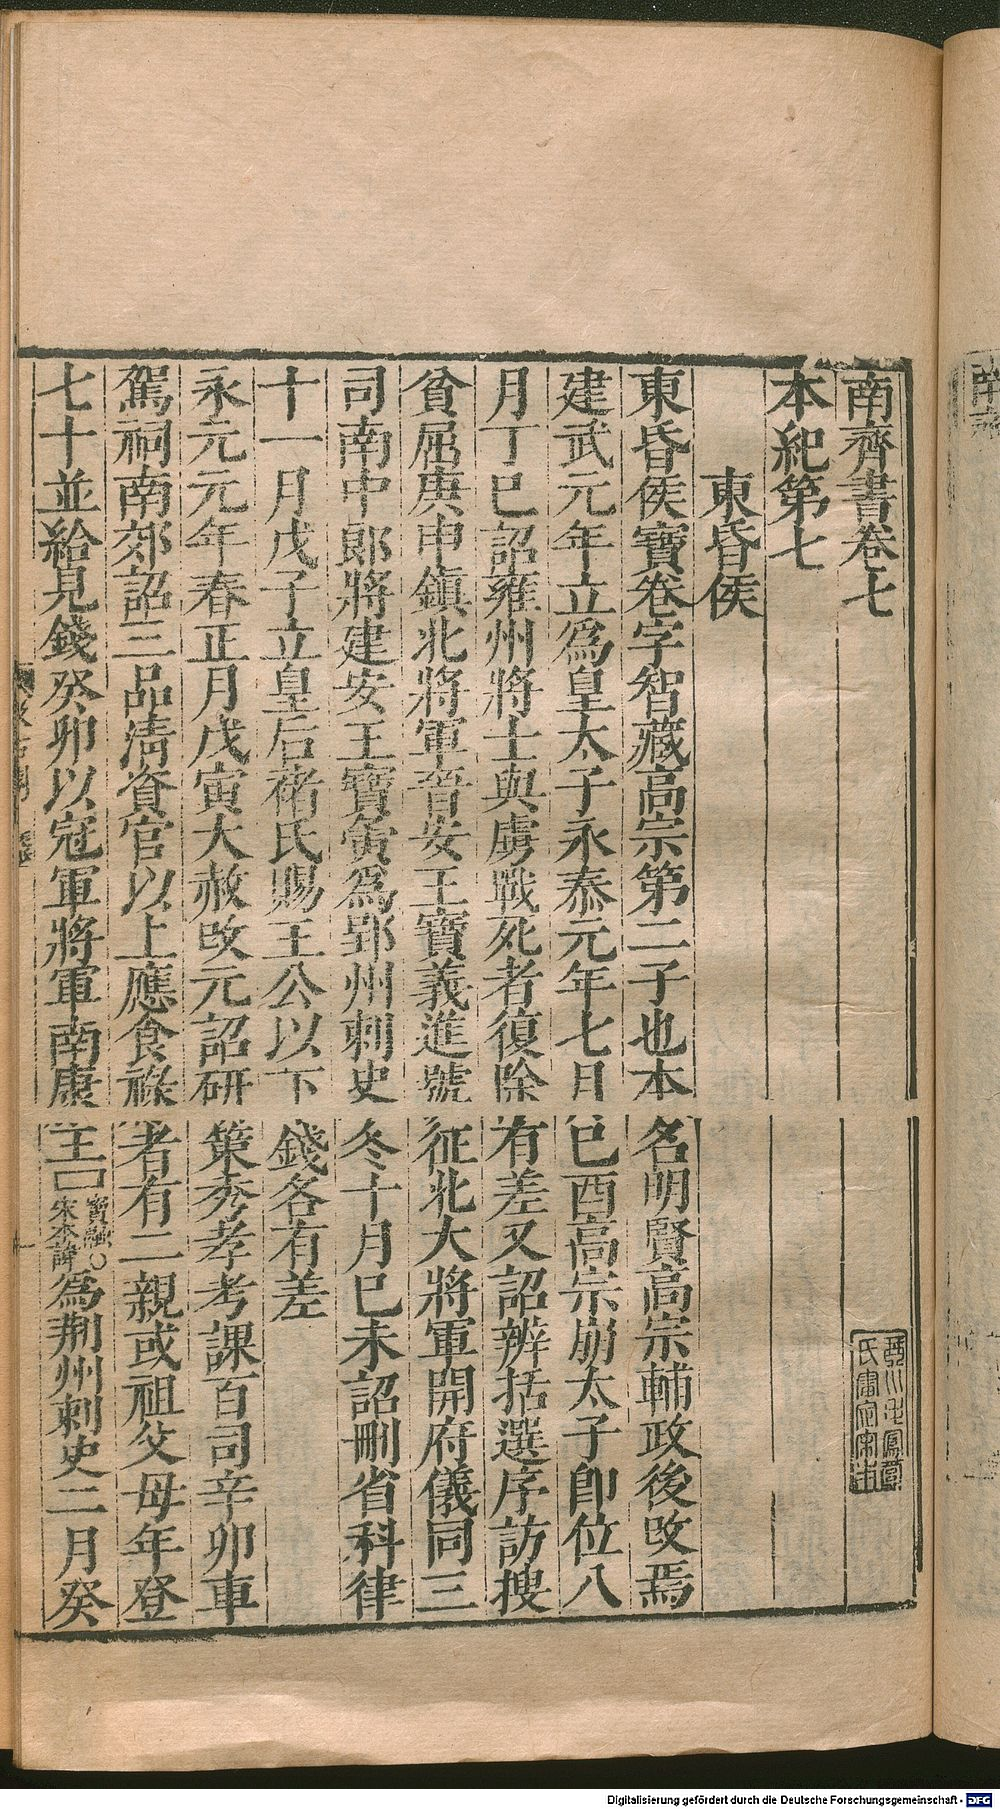 南齊書卷七
本紀第七
東昏侯
東昏侯寶卷字智藏高宗第二子也本名明賢高宗輔政後改焉
建武元年立爲皇太子永泰元年七月巳酉高宗崩太子卽位八
月丁巳詔雍州將士與虜戰死者復除有差又詔辨括選序訪搜
貧屈庚申鎭北將軍晉安王寶義進號征北大將軍開府儀同三
司南中郎將建安王寶夤爲郢州刺史冬十月巳未詔刪省科律
十一月戊子立皇后褚氏賜王公以下錢各有差
永元元年春正月戊寅大赦改元詔研策秀孝考課百司辛卯車
駕祠南郊詔三品淸資官以上應食祿者有二親或祖父母年登
七十並給見錢癸卯以冠軍將軍南康王□寶融○宋本諱爲荆州刺史二月癸
Digitalisierung gefördert durch die Deutsche Forschungsgemeinschaft - DFG